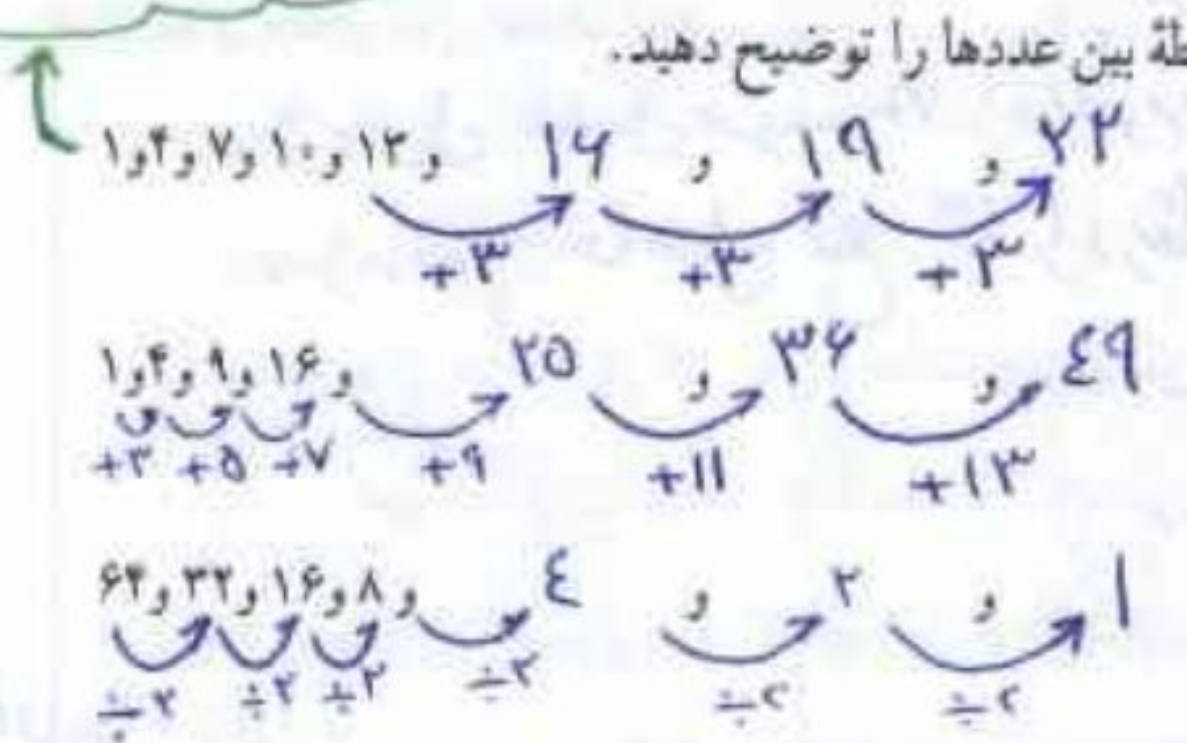 بین عددها را توضیح دهید.
۱و۴و۷و۱۰و۱۳و ۱۶ و ۱۹ و ۲۲
+۳ +۳ +۳
۱و۴و۹و۱۶و ۲۵ و ۳۶ و ٤۹
+۳ +۵ +۷ +۹ +۱۱ +۱۳
۶۴و۳۲و۱۶و۸و ٤ و ۲ و ۱
÷۲ ÷۲ ÷۲ ÷۲ ÷۲ ÷۲